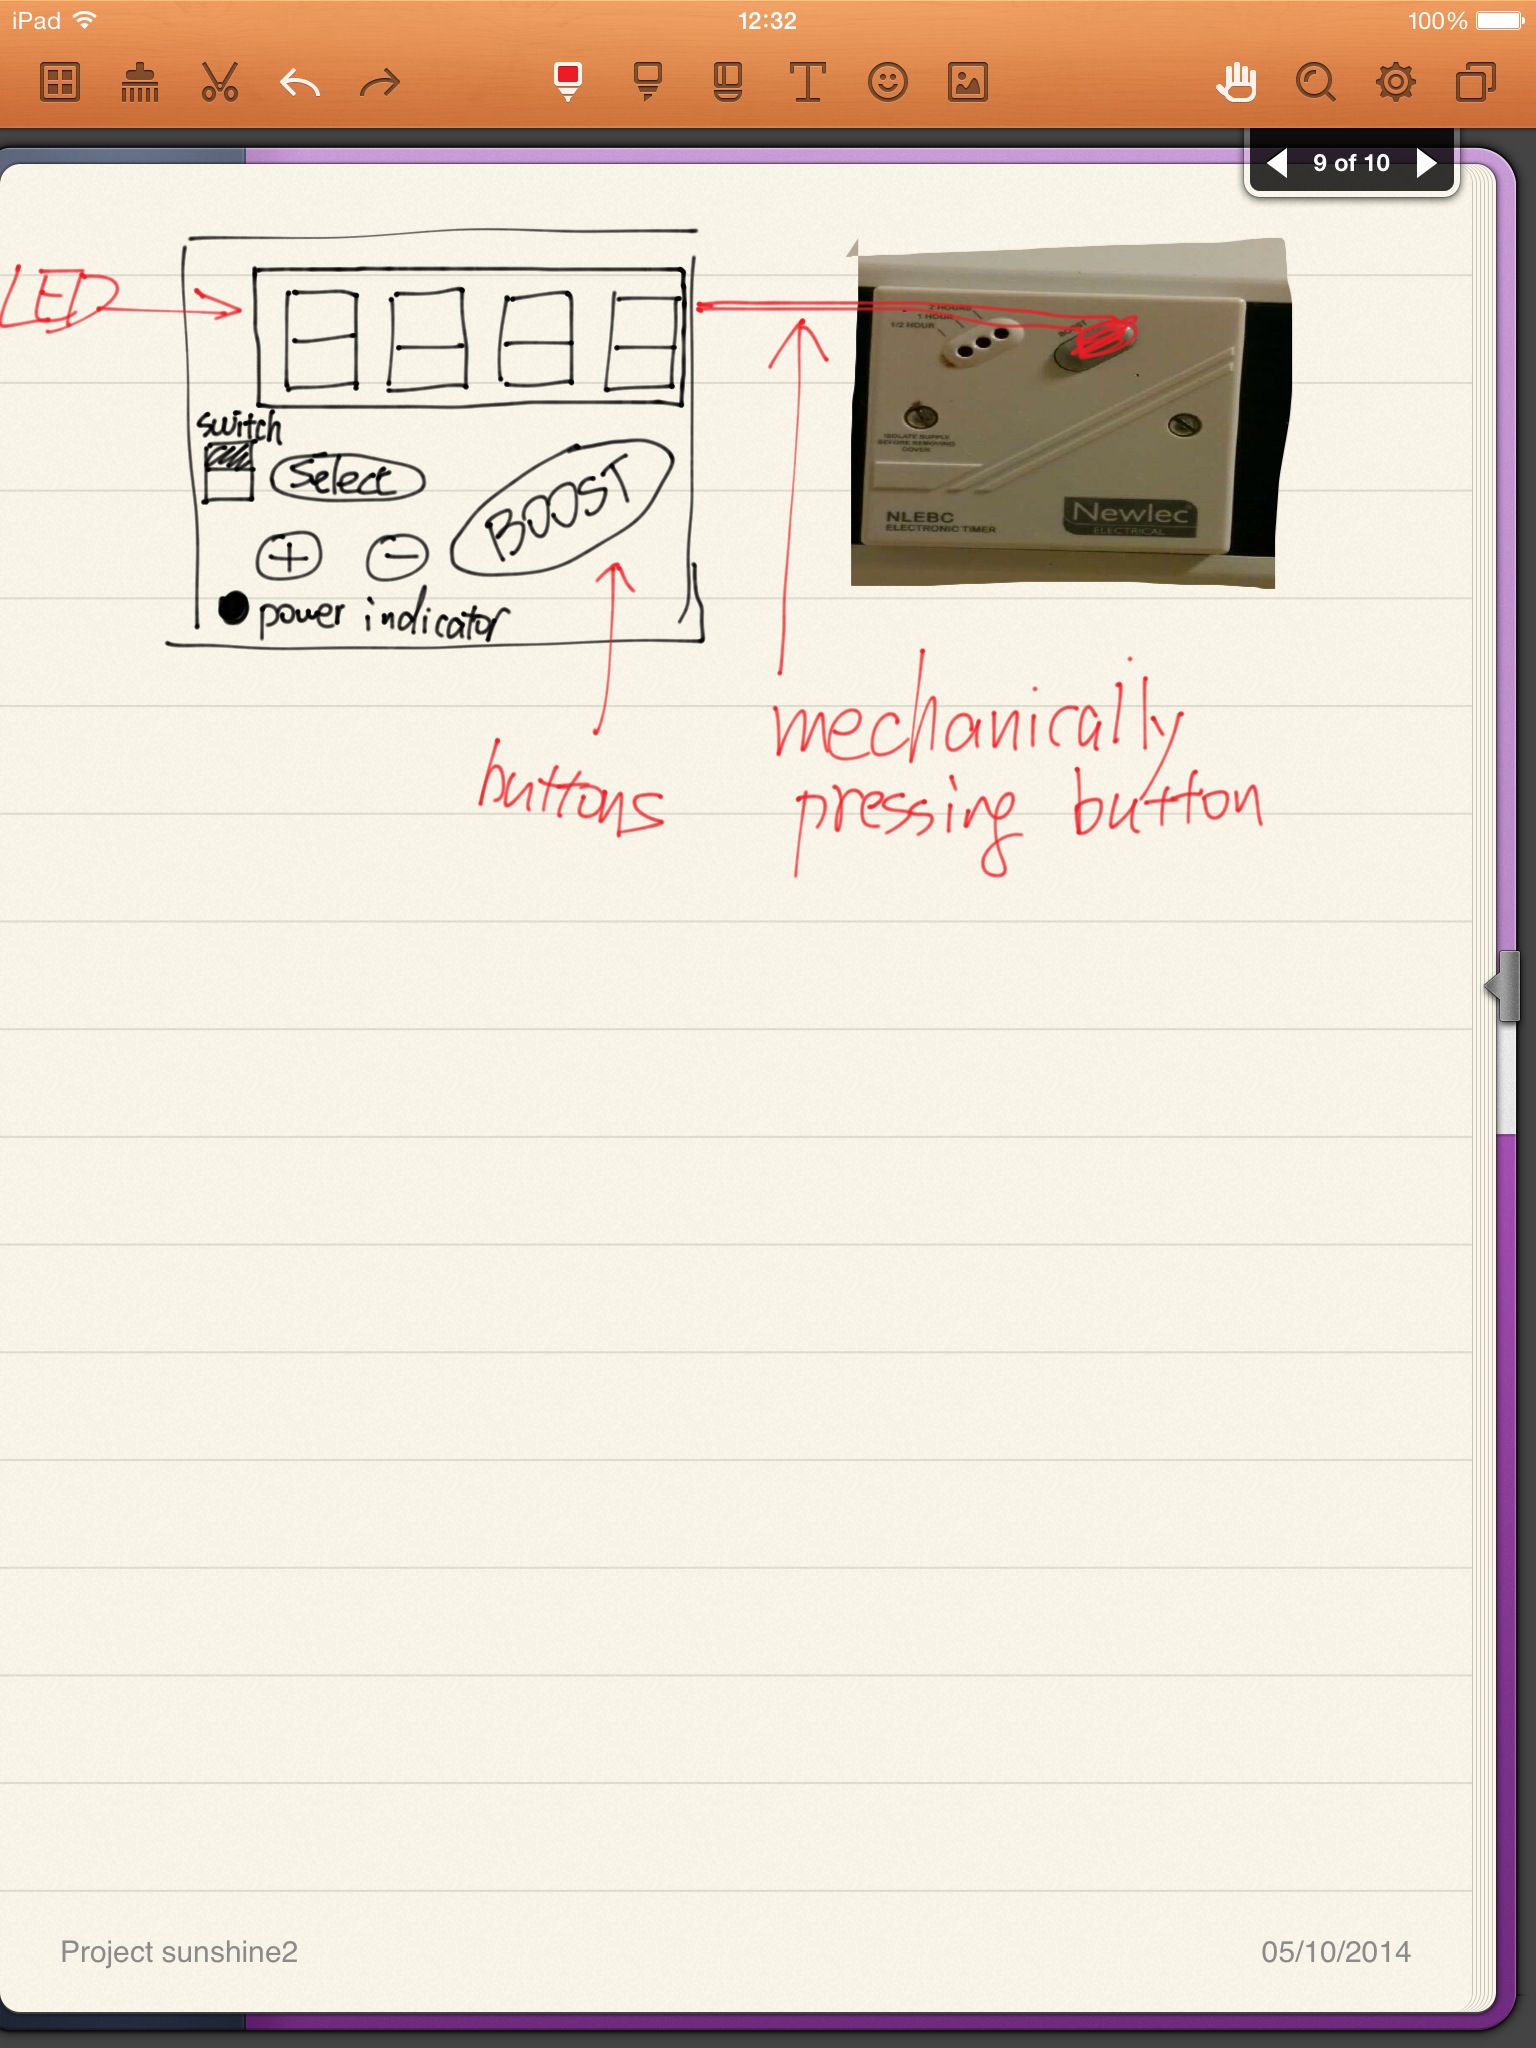 iPad 12:32 100%
9 of 10
LED
switch
Select
BOOST
+ −
power indicator
2 HOURS
1 HOUR
1/2 HOUR
BOOST
ISOLATE SUPPLY
BEFORE REMOVING
COVER
NLEBC
ELECTRONIC TIMER
Newlec
ELECTRICAL
buttons
mechanically
pressing button
Project sunshine2 05/10/2014